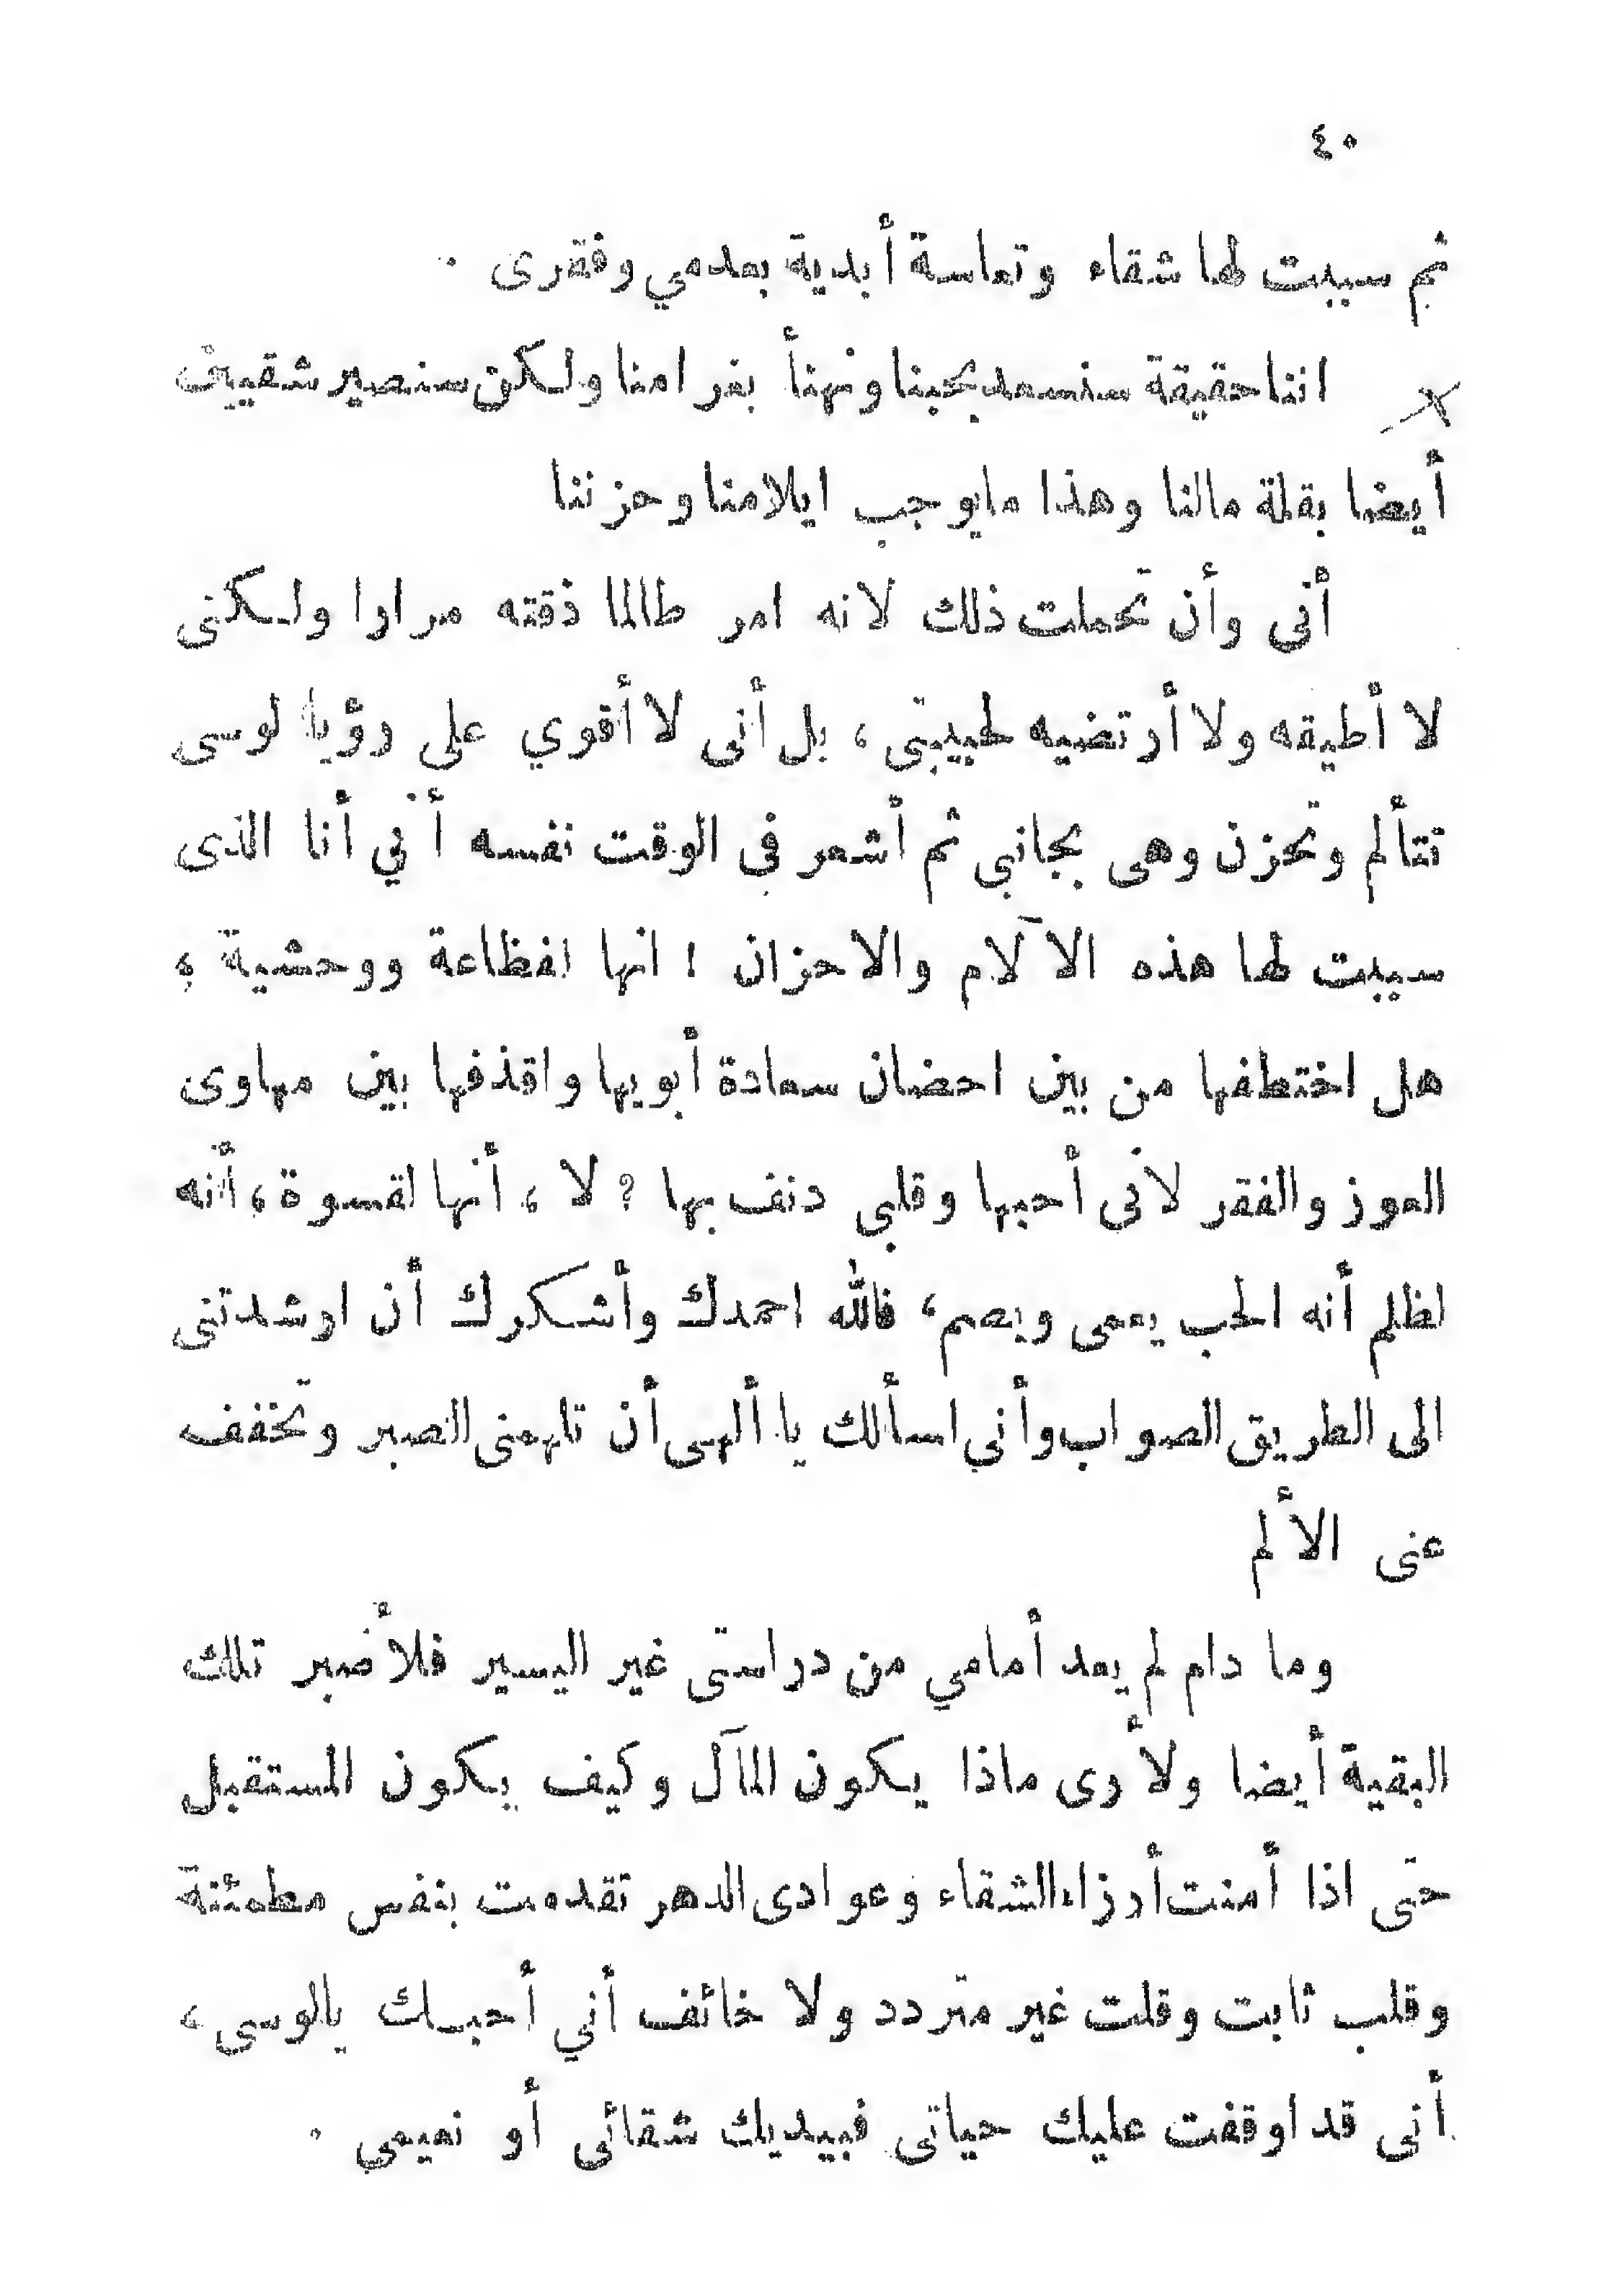 ٤٠
ثم سببت لها شقاء وتعاسة أبدية بعدمي وفقرى .
اننا حقيقة سنسعد بحبنا ونهنأ بغرامنا ولكن سنصير شقيين
أيضا بقلة مالنا وهذا مايوجب ايلامنا وحزننا
أنى وأن تحملت ذلك لانه امر طالما ذقته مرارا ولكنى
لا أطيقه ولا أرتضيه لحبيبتى ، بل أنى لا أقوي على رؤيا لوسى
تتألم وتحزن وهى بجانبى ثم أشعر فى الوقت نفسه أني أنا الذى
سببت لها هذه الآلام والاحزان ! انها لفظاعة ووحشية ،
هل اختطفها من بين احضان سعادة أبويها واقذفها بين مهاوى
العوز والفقر لأنى أحبها وقلبى دنف بها ? لا ، أنها لقسوة ، أنه
لظلم أنه الحب يعمى ويصم ، فالله احمدك وأشكرك أن ارشدتنى
الى الطريق الصواب وأني اسألك يا ألهى أن تلهمنى الصبر وتخفف
عنى الألم
وما دام لم يعد أمامي من دراستى غير اليسير فلأصبر تلك
البقية أيضا ولأرى ماذا يكون المآل وكيف يكون المستقبل
حتى اذا أمنت أرزاء الشقاء وعوادى الدهر تقدمت بنفس مطمئنة
وقلب ثابت وقلت غير متردد ولا خائف أني أحبك يالوسى ،
أنى قد اوقفت عليك حياتى فبيديك شقائى أو نعيمى .